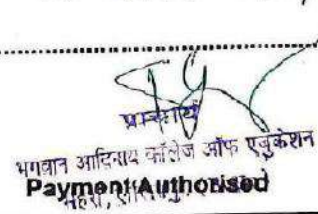 प्राचार्य
भगवान आदिनाथ कॉलेज ऑफ एजुकेशन
Payment Authorised